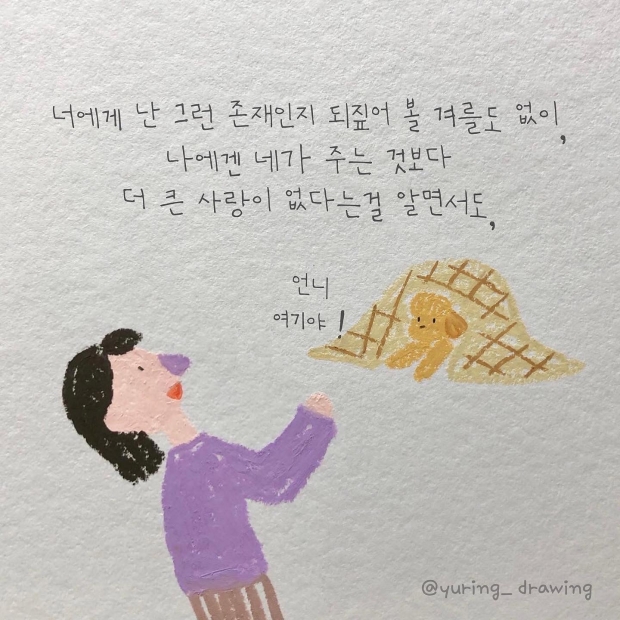 너에게 난 그런 존재인지 되짚어 볼 겨를도 없이,
나에겐 네가 주는 것보다
더 큰 사랑이 없다는걸 알면서도,
언니
여기야!
@yuring_drawing